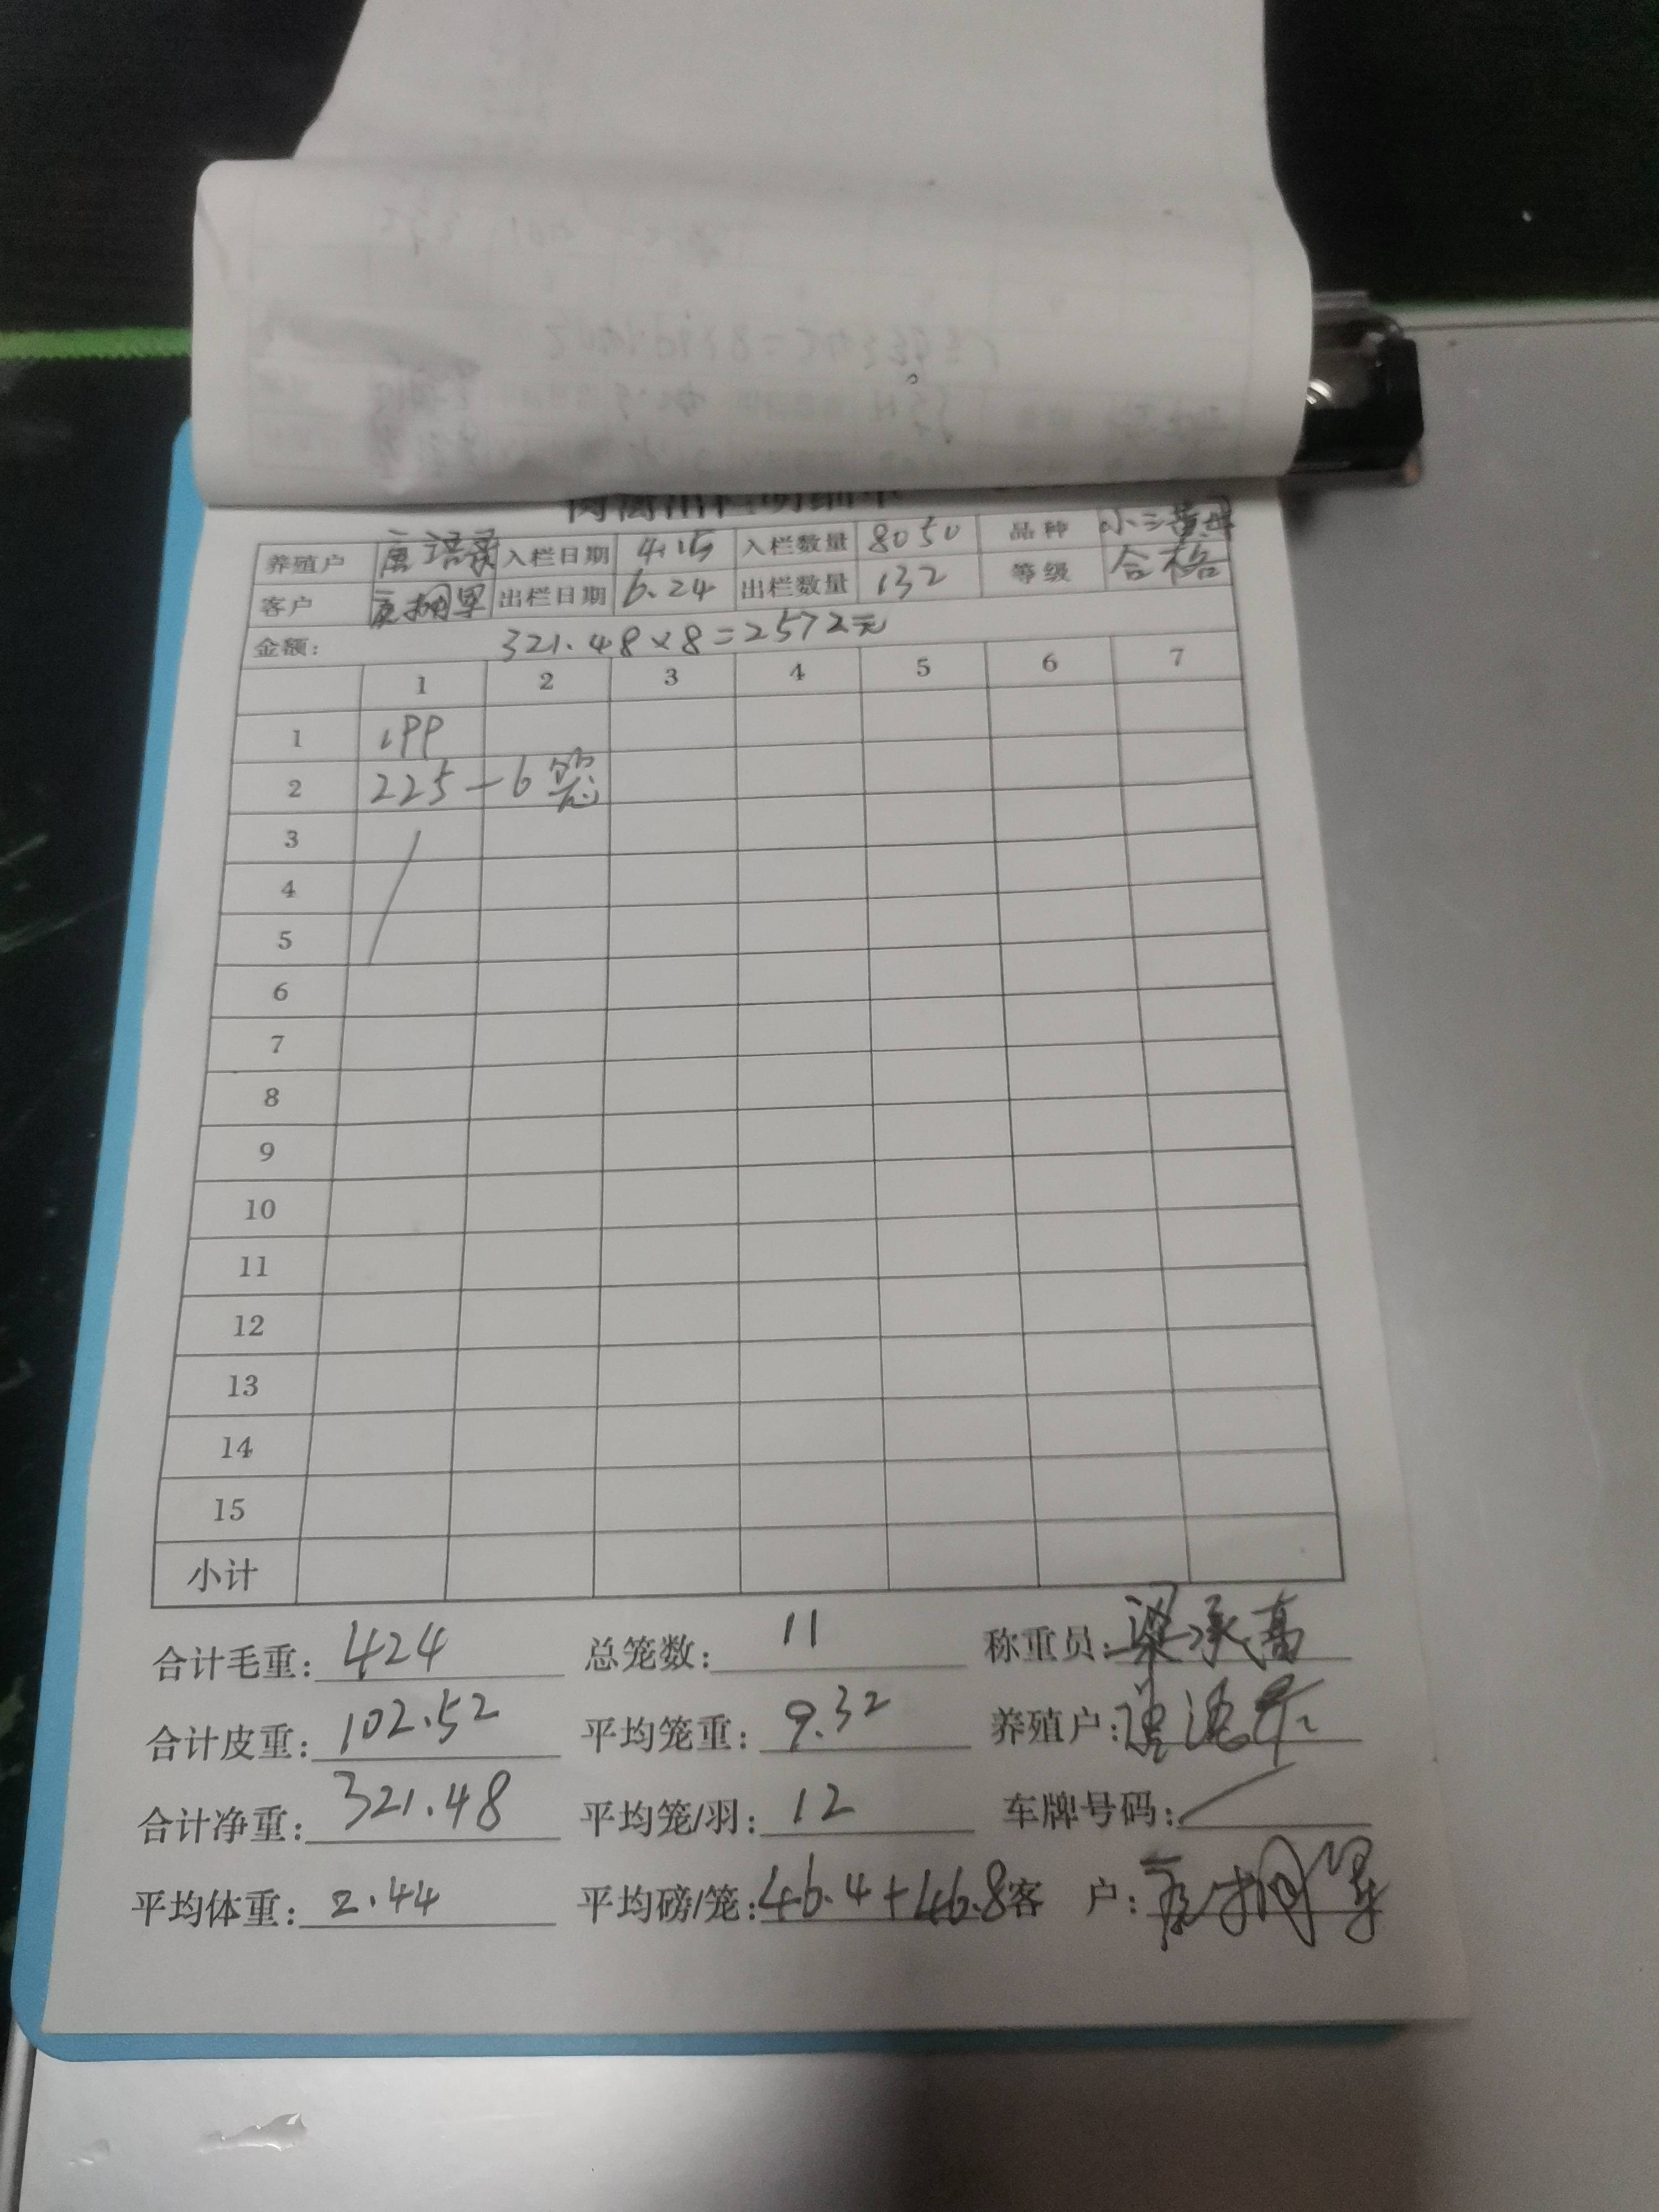 养殖户 唐语录 入栏日期 4.15 入栏数量 8050 品种 小三黄母
客户 出栏日期 6.24 出栏数量 132 等级 合格
金额: 321.48×8=2572元
1 2 3 4 5 6 7
1 199
2 225-6笼
3
4
5
6
7
8
9
10
11
12
13
14
15
小计
合计毛重: 424 总笼数: 11 称重员: 梁承高
合计皮重: 102.52 平均笼重: 9.32 养殖户:
合计净重: 321.48 平均笼/羽: 12 车牌号码: /
平均体重: 2.44 平均磅/笼: 46.4+46.8 客 户: